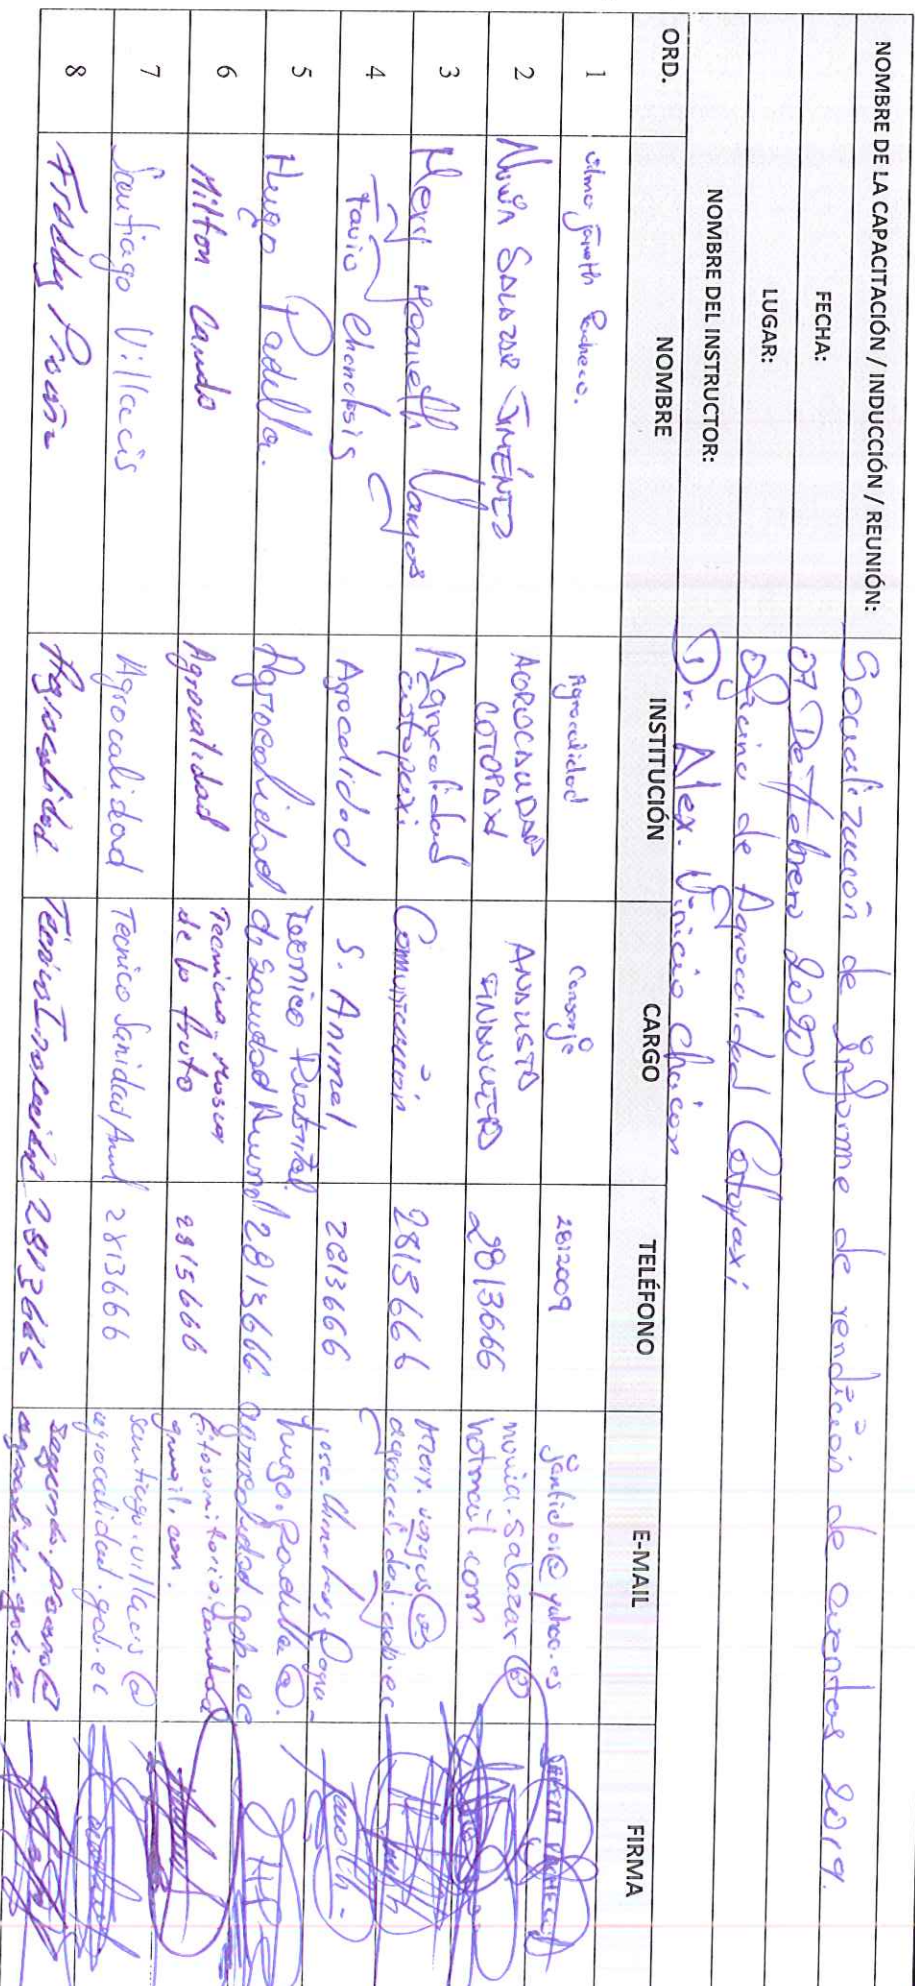 NOMBRE DE LA CAPACITACIÓN / INDUCCIÓN / REUNIÓN: Socialización de Informe de rendición de cuentas 2019.
FECHA: 07 De Febrero 2020
LUGAR: Oficina de Agrocalidad Cotopaxi
NOMBRE DEL INSTRUCTOR: Dr. Alex Vinicio Chacón
ORD. NOMBRE INSTITUCIÓN CARGO TELÉFONO E-MAIL FIRMA
1 Vilma Janeth Pacheco. Agrocalidad Conserje 2812009 @yahoo.es
2 SALAZAR JIMÉNEZ AGROCALIDAD COTOPAXI ANALISTA 2813666 salazar@
hotmail.com
3 Mery Vargas Agrocalidad Cotopaxi Comunicación 2813666 mery.vargas@
agrocalidad.gob.ec
4 Favio Agrocalidad S. Animal 2813666
5 Hugo Padilla. Agrocalidad Tecnico Distrital
de Sanidad Animal 2813666 hugo.padilla@
agrocalidad.gob.ec
6 Milton Cando Agrocalidad Tecnico Mosca
de la fruta 2813666
gmail.com.
7 Santiago Villacis Agrocalidad Tecnico Sanidad Animal 2813666 santiago.villacis@
agrocalidad.gob.ec
8 Freddy Proaño Agrocalidad Tecnico Inocuidad 2813666
agrocalidad.gob.ec